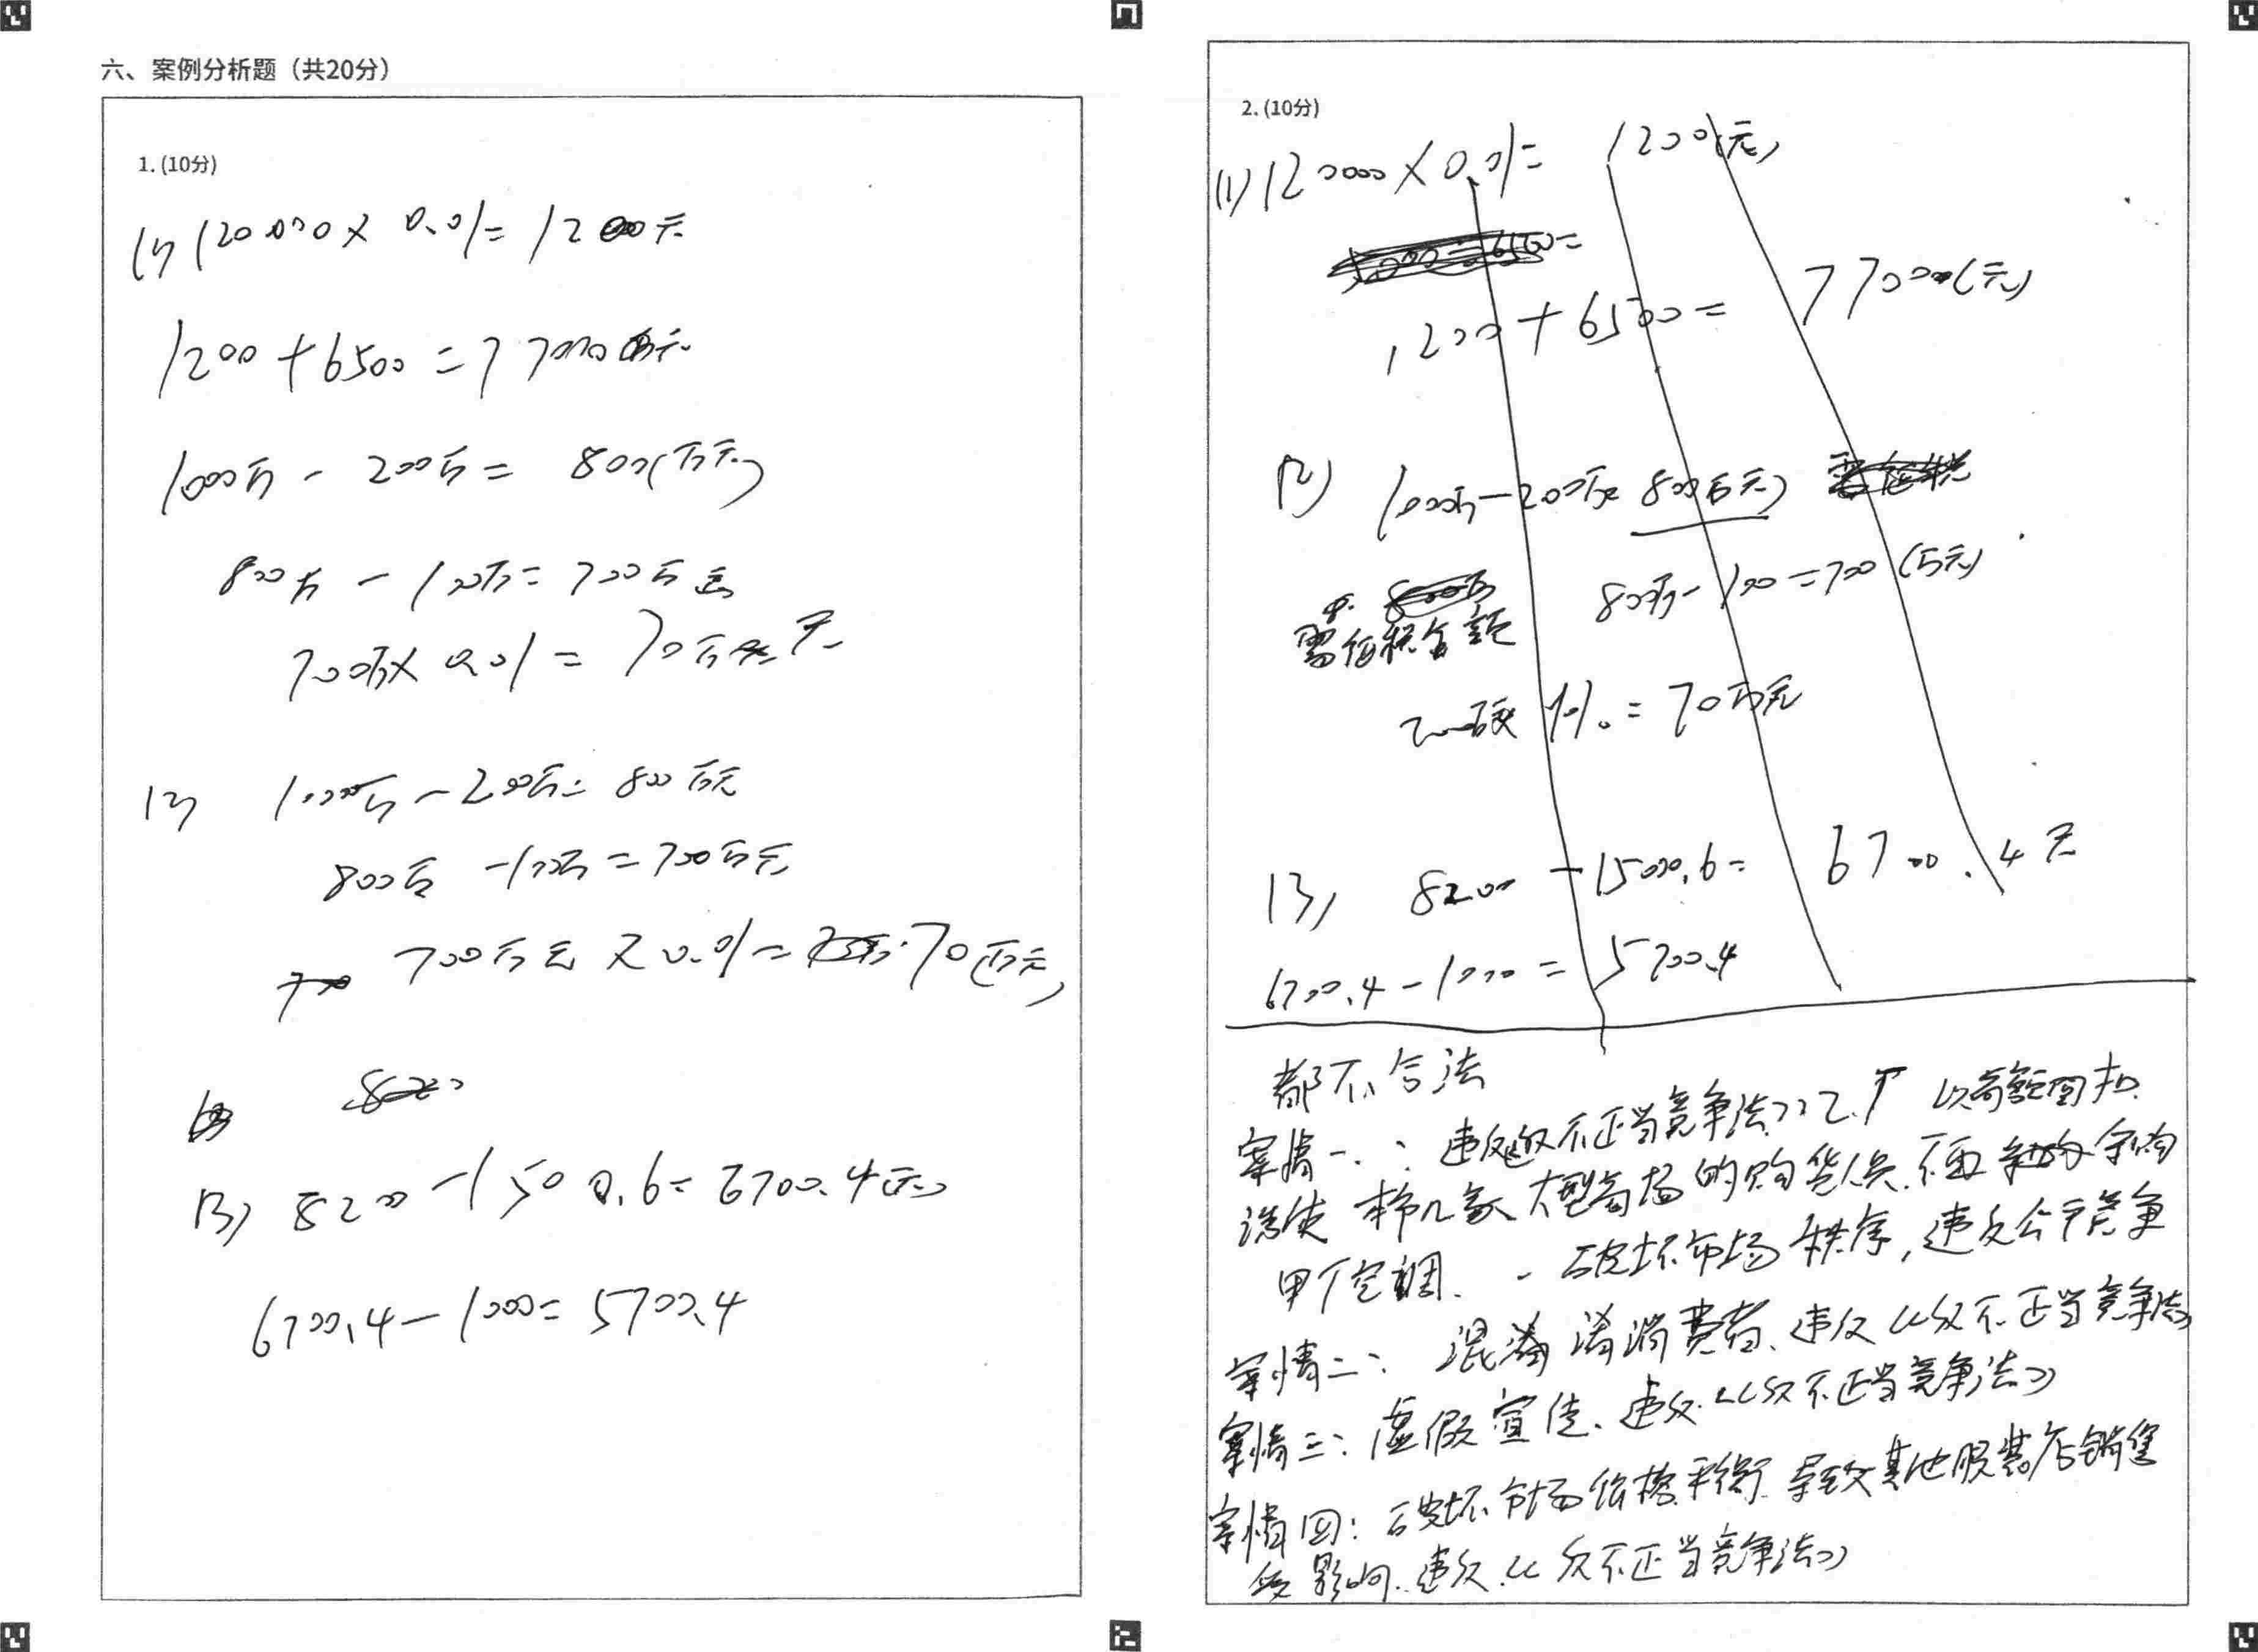 六、案例分析题（共20分）
1. (10分)
(1) 120000 × 0.01 = 1200元
1200 + 6500 = 7700元
1000万 - 200万 = 800(万元)
800万 - 100万 = 700万元
700万 × 0.01 = 70万元
(2) 1000万 - 200万 = 800万元
800万 - 100万 = 700万元
700万元 × 0.01 = 70(万元)
(3) 8200 - 1500.6 = 6700.4(元)
6700.4 - 1000 = 5700.4
2. (10分)
(1) 120000 × 0.01 = 1200(元)
1200 + 6500 = 7700(元)
(2) 1000万 - 200万 = 800万元)
800万 - 100 = 700(万元)
需征税金额
700万 × 1% = 70万元
(3) 8200 - 1500.6 = 6700.4元
6700.4 - 1000 = 5700.4
都不合法
案情一：违反《反不正当竞争法》乙厂以高额回扣
诱使本市几家大型商场的购货人员不再订购
甲厂空调. 破坏市场秩序, 违反公平竞争
案情二：混淆消费者、违反《反不正当竞争法》
案情三：虚假宣传、违反《反不正当竞争法》
案情四：破坏市场价格平衡. 导致其他服装店销售
受影响. 违反《反不正当竞争法》